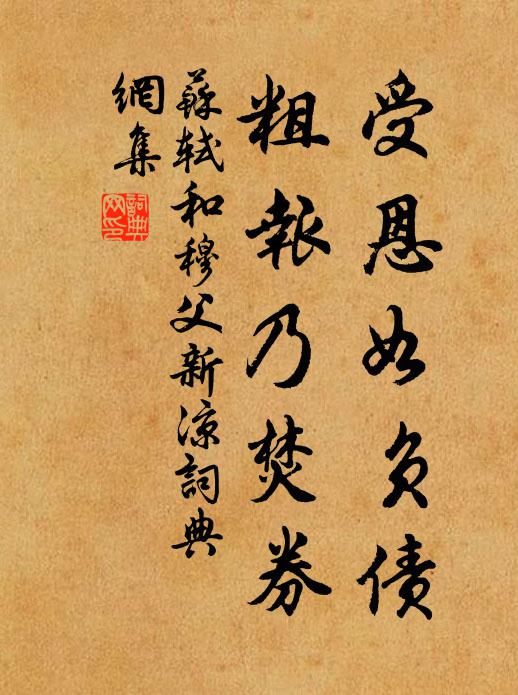 受恩如负债
粗報乃焚券
蘇軾和穆父新涼詞典
網集
詞典
网印